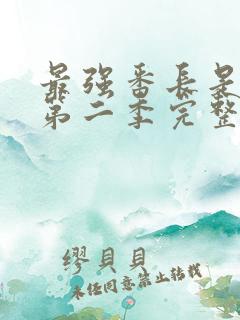 最强番长是
第二季完整
缪贝贝
未经同意禁止转载